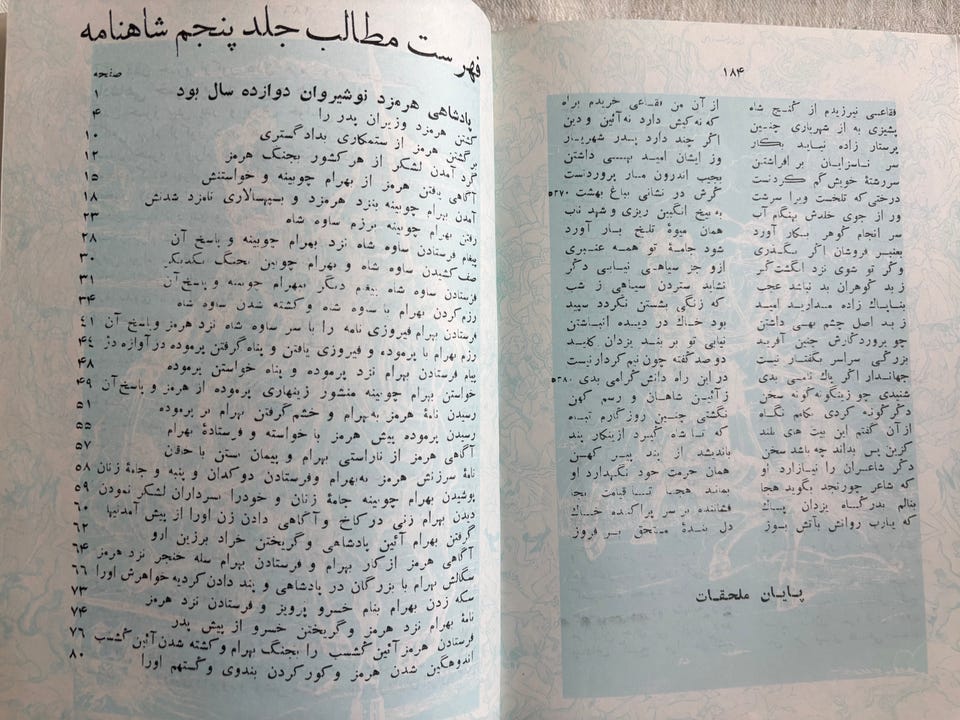 ۱۸۴
فقاعی نیرزیدم از گنج شاه از آن من فقاعی خریدم براه
پشیزی به از شهریاری چنین که نه کیش دارد نه آئین و دین
پرستار زاده نیاید بکار اگر چند دارد پدر شهریار
سر ناسزایان برافراشتن وز ایشان امید بهی داشتن
سررشتهٔ خویش گم کردنست بجیب اندرون مار پروردنست
درختی که تلخست ویرا سرشت گرش در نشانی بباغ بهشت ۵۲۷۰
ور از جوی خلدش بهنگام آب به بیخ انگبین ریزی و شهد ناب
سر انجام گوهر بکار آورد همان میوهٔ تلخ بار آورد
بعنبر فروشان اگر بگذری شود جامهٔ تو همه عنبری
وگر تو شوی نزد انگشت گر ازو جز سیاهی نیابی دگر
ز بد گوهران بد نباشد عجب نشاید ستردن سیاهی ز شب
بناپاک زاده مدارید امید که زنگی بشستن نگردد سپید
ز بد اصل چشم بهی داشتن بود خاک در دیده انباشتن
چو پروردگارش چنین آفرید نیابی تو بر بند یزدان کلید
بزرگی سراسر بگفتار نیست دوصد گفته چون نیم کردار نیست
جهاندار اگر پاک نامی بدی در این راه دانش گرامی بدی ۵۲۸۰
شنیدی چو زینگونه گونه سخن ز آئین شاهان و رسم کهن
دگرگونه کردی بکامم نگاه نگشتی چنین روزگارم تباه
از آن گفتم این بیت های بلند که تا شاه گیرد ازینکار پند
کزین پس بداند چه باشد سخن باندیشد از پند پیر کهن
دگر شاعران را نیازارد او همان حرمت خود نگهدارد او
که شاعر چو رنجد بگوید هجا بماند هجا تا قیامت بجا
بنالم بدرگاه یزدان پاک فشاننده بر سر پراکنده خاک
که یارب روانش بآتش بسوز دل بندهٔ مستحق بر فروز
پایان ملحقات
فهرست مطالب جلد پنجم شاهنامه
صفحه
پادشاهی هرمزد نوشیروان دوازده سال بود ۱
کشتن هرمزد وزیران پدر را ۴
برگشتن هرمز از ستمکاری بدادگستری ۱۰
گرد آمدن لشکر از هر کشور بجنگ هرمز ۱۲
آگاهی یافتن هرمز از بهرام چوبینه و خواستنش ۱۵
آمدن بهرام چوبینه بنزد هرمزد و بسپهسالاری نامزد شدنش ۱۸
رفتن بهرام چوبینه برزم ساوه شاه ۲۳
پیغام فرستادن ساوه شاه نزد بهرام چوبینه و پاسخ آن ۲۸
صف کشیدن ساوه شاه و بهرام چوبین بجنگ یکدیگر ۳۰
فرستادن ساوه شاه پیغام دیگر ببهرام چوبینه و پاسخ آن ۳۱
رزم کردن بهرام با ساوه شاه و کشته شدن ساوه شاه ۳۴
فرستادن بهرام فیروزی نامه را با سر ساوه شاه نزد هرمز و پاسخ آن ۴۱
رزم بهرام با پرموده و فیروزی یافتن و پناه گرفتن پرموده در آوازه دژ ۴۴
پیام فرستادن بهرام نزد پرموده و پناه خواستن پرموده ۴۸
خواستن بهرام چوبینه منشور زینهاری پرموده از هرمز و پاسخ آن ۴۹
رسیدن نامهٔ هرمز به بهرام و خشم گرفتن بهرام بر پرموده ۵۱
رسیدن پرموده پیش هرمز با خواسته و فرستادهٔ بهرام ۵۵
آگاهی هرمز از ناراستی بهرام و پیمان بستن با خاقان ۵۷
نامهٔ سرزنش هرمز به بهرام و فرستادن دوکدان و پنبه و جامهٔ زنان ۵۸
پوشیدن بهرام چوبینه جامهٔ زنان و خود را بسرداران لشکر نمودن ۵۹
دیدن بهرام زنی در کاخ و آگاهی دادن زن او را از پیش آمدنیها ۶۰
گرفتن بهرام آئین پادشاهی و گریختن خراد برزین ازو ۶۲
آگاهی هرمز از کار بهرام و فرستادن بهرام سله خنجر نزد هرمز ۶۴
سگالش بهرام با بزرگان در پادشاهی و پند دادن کردیه خواهرش او را ۶۶
سکه زدن بهرام بنام خسرو پرویز و فرستادن نزد هرمز ۷۳
نامهٔ بهرام نزد هرمز و گریختن خسرو از پیش پدر ۷۴
فرستادن هرمز آئین گشسب را بجنگ بهرام و کشته شدن آئین گشسب ۷۶
اندوهگین شدن هرمز و کور کردن بندوی و گستهم او را ۸۰